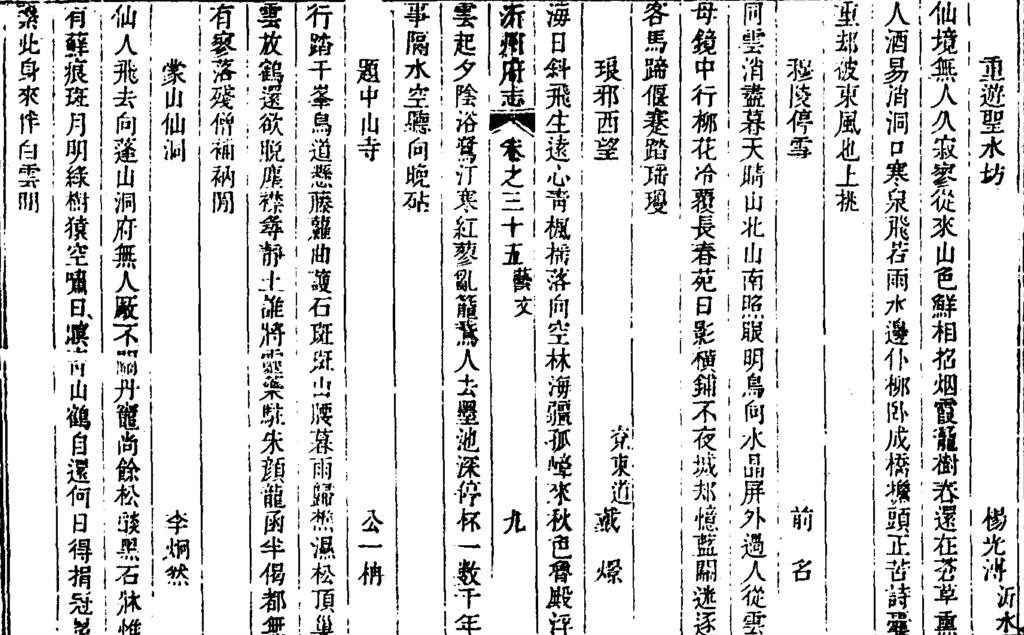 重遊聖水坊 楊光溥 沂水
仙境無人久寂寥從來山色鮮相招烟霞籠樹春還在荅草熏
人酒易消洞口寒泉飛若雨水邊仆柳臥成橋欖頭正苦詩囊
重却被東風也上挑
穆陵停雪 前名
同雲消盡暮天晴山北山南照眼明鳥向水晶屏外過人從雲
母鏡中行柳花冷覆長春苑日影橫鋪不夜城却憶藍關迷逐
客馬蹄偃蹇踏瑶瓊
琅邪西望 兗東道 戴璟
海日斜飛生遠心靑楓搖落向空林海疆孤嶂來秋色魯殿浮
沂州府志 卷之三十五 藝文 九
雲起夕陰浴鷺汀寒紅蓼亂籠鵞人去墨池深停杯一數千年
事隔水空聽向晚砧
題中山寺 公一柟
行踏千峯鳥道懸藤蘿曲護石斑斑山腰暮雨歸樵濕松頂巢
雲放鶴還欲脫塵襟尋靜土誰將靈藥駐朱顏龍函半偈都無
有寥落殘僧補衲閒
蒙山仙洞 李炯然
仙人飛去向蓬山洞府無人厰不關丹竈尚餘松燄黑石牀惟
有蘚痕斑月明綠樹猿空嘯日暝靑山鶴自還何日得捐冠
此身來伴白雲閒